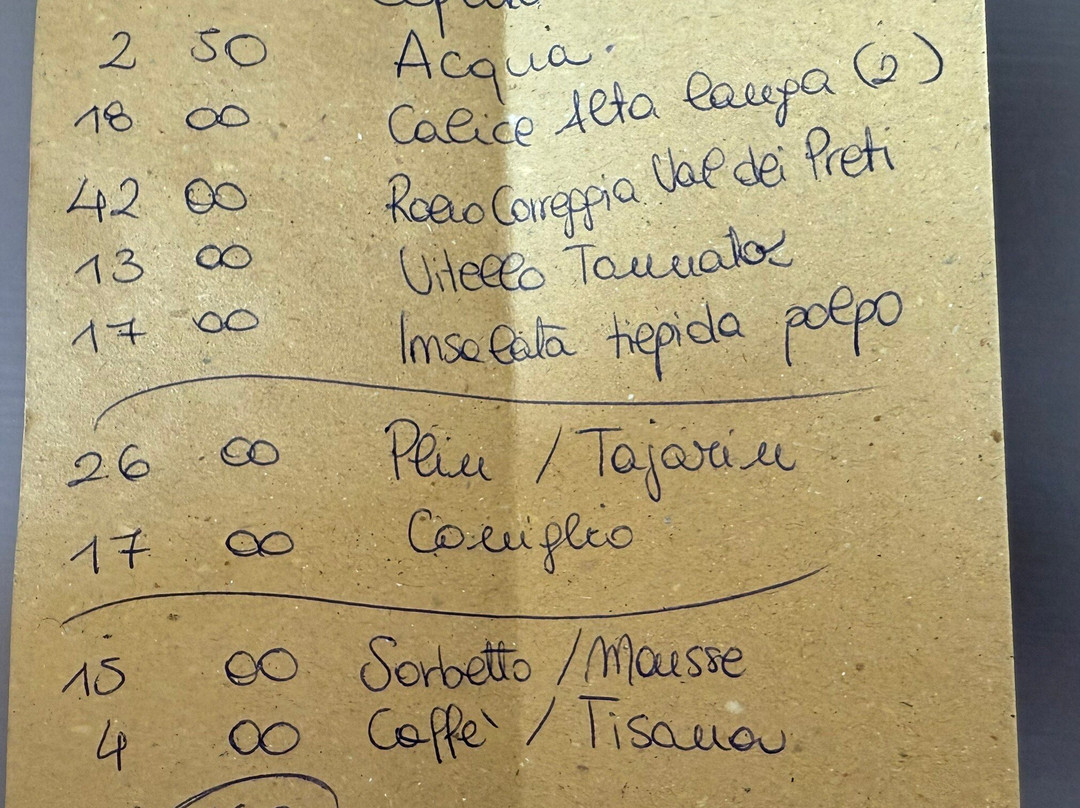 2 50 Acqua
18 00 Calice Alta langa (2)
42 00 Roero Correggia Val dei Preti
13 00 Vitello Tonnato
17 00 Insalata tiepida polpo
26 00 Plin / Tajarin
17 00 Coniglio
15 00 Sorbetto / Mousse
4 00 Caffè / Tisana